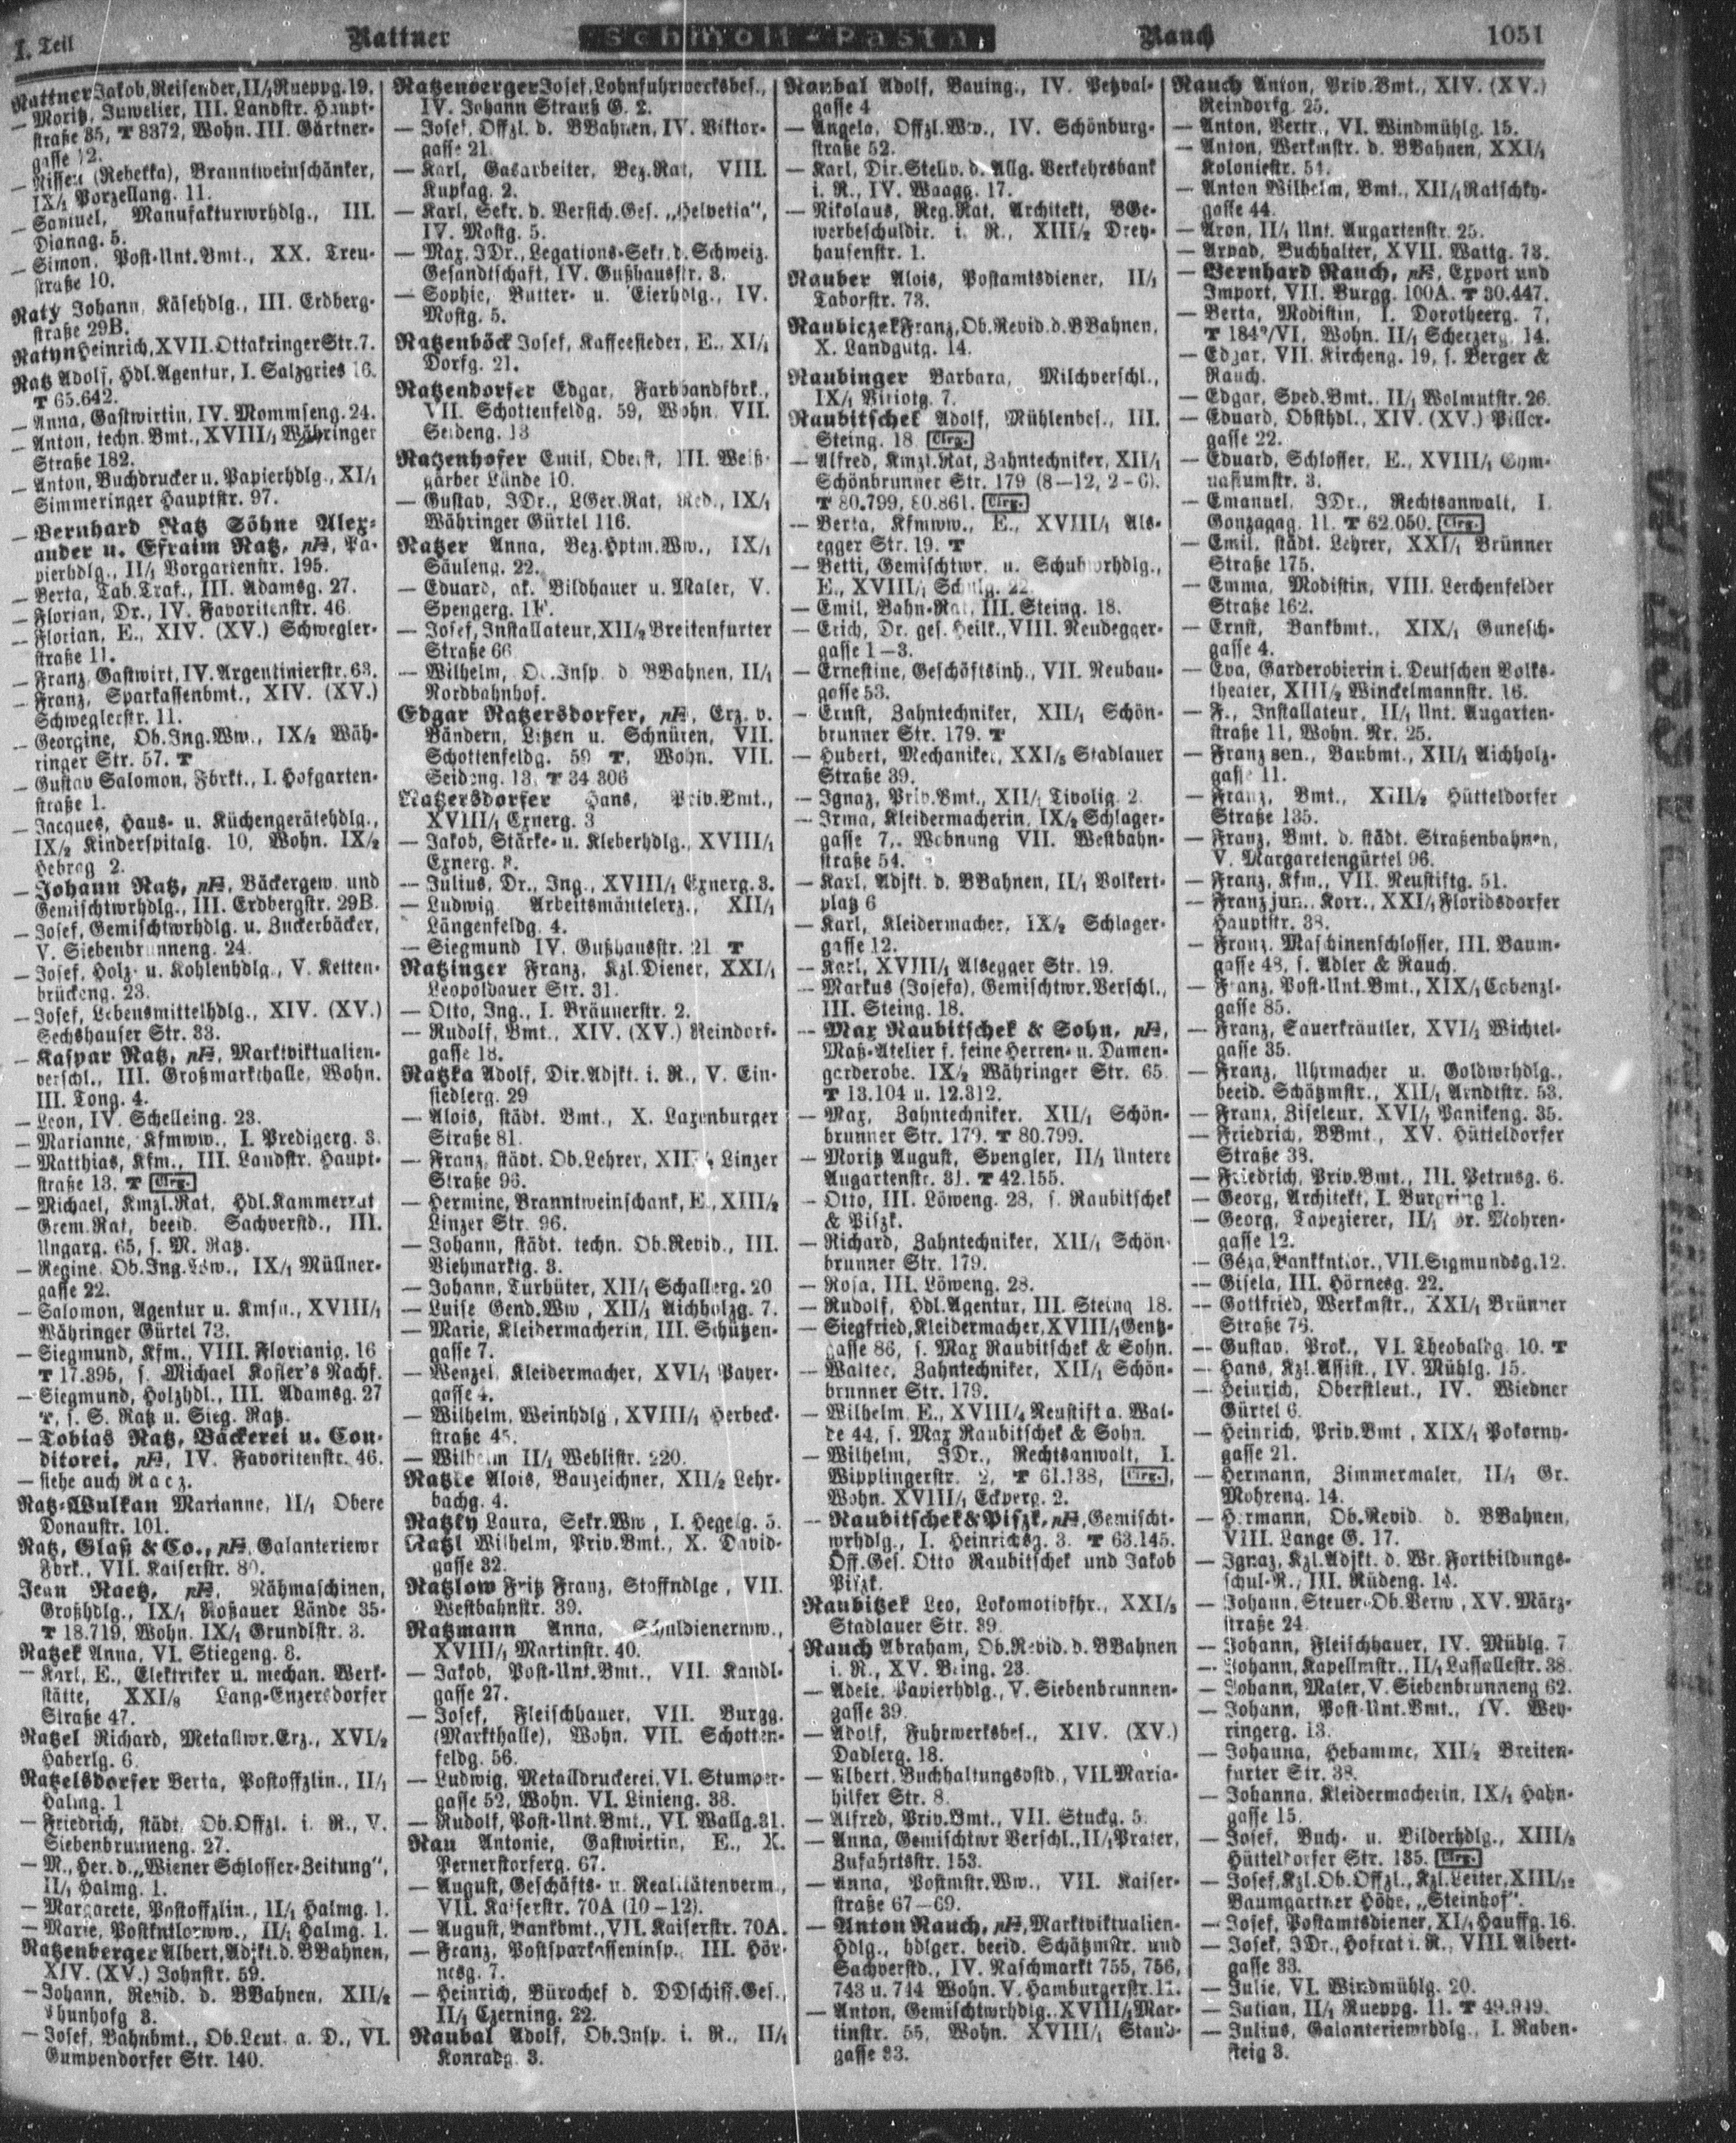 I. Teil Rattner Schmoll-Pasta Rauch 1051
Rattner Jakob, Reisender, II/1 Rueppg. 19.
— Moritz, Juwelier, III. Landstr. Haupt-
straße 35, T 8372, Wohn. III. Gärtner-
gasse 12.
— Nissen (Rebekka), Branntweinschänker,
IX/1 Porzellang. 11.
— Samuel, Manufakturwrhdlg., III.
Dianag. 5.
— Simon, Post-Unt.Bmt., XX. Treu-
straße 10.
Raty Johann, Käsehdlg., III. Erdberg-
straße 29B.
Ratyn Heinrich, XVII. Ottakringer Str. 7.
Ratz Adolf, Hdl.Agentur, I. Salzgries 16.
T 65.642.
— Anna, Gastwirtin, IV. Mommseng. 24.
— Anton, techn. Bmt., XVIII/1 Währinger
Straße 182.
— Anton, Buchdrucker u. Papierhdlg., XI/1
Simmeringer Hauptstr. 97.
— Bernhard Ratz Söhne Alex-
ander u. Efraim Ratz, pF, Pa-
pierhdlg., II/1 Vorgartenstr. 195.
— Berta, Tab.Traf., III. Adamsg. 27.
— Florian, Dr., IV. Favoritenstr. 46.
— Florian, E., XIV. (XV.) Schwegler-
straße 11.
— Franz, Gastwirt, IV. Argentinierstr. 63.
— Franz, Sparkassenbmt., XIV. (XV.)
Schweglerstr. 11.
— Georgine, Ob.Ing.Ww., IX/2 Wäh-
ringer Str. 57. T
— Gustav Salomon, Fbrkt., I. Hofgarten-
straße 1.
— Jacques, Haus- u. Küchengerätehdlg.,
IX/2 Kinderspitalg. 10, Wohn. IX/2
Hebrag 2.
— Johann Ratz, pF, Bäckergew. und
Gemischtwrhdlg., III. Erdbergstr. 29B.
— Josef, Gemischtwrhdlg. u. Zuckerbäcker,
V. Siebenbrunneng. 24.
— Josef, Holz- u. Kohlenhdlg., V. Ketten-
brückeng. 23.
— Josef, Lebensmittelhdlg., XIV. (XV.)
Sechshauser Str. 33.
— Kaspar Ratz, pF, Marktviktualien-
verschl., III. Großmarkthalle, Wohn.
III. Tong. 4.
— Leon, IV. Schelleing. 23.
— Marianne, Kfmww., I. Predigerg. 3.
— Matthias, Kfm., III. Landstr. Haupt-
straße 13. T Clrg.
— Michael, Kmzl.Rat, Hdl.Kammerrat
Grem.Rat, beeid. Sachverstd., III.
Ungarg. 65, s. M. Ratz.
— Regine, Ob.Ing.Ww., IX/1 Müllner-
gasse 22.
— Salomon, Agentur u. Kmsn., XVIII/1
Währinger Gürtel 73.
— Siegmund, Kfm., VIII. Florianig. 16
T 17.395, s. Michael Kosler's Nachf.
— Siegmund, Holzhdl., III. Adamsg. 27
T, s. S. Ratz u. Sieg. Ratz.
— Tobias Ratz, Bäckerei u. Con-
ditorei, pF, IV. Favoritenstr. 46.
— siehe auch Racz.
Ratz-Wulkan Marianne, II/1 Obere
Donaustr. 101.
Ratz, Glaß & Co., pF, Galanteriewr
Fbrk., VII. Kaiserstr. 80.
Jean Raetz, pF, Nähmaschinen,
Großhdlg., IX/1 Roßauer Lände 35.
T 18.719, Wohn. IX/1 Grundlstr. 3.
Ratzek Anna, VI. Stiegeng. 8.
— Karl, E., Elektriker u. mechan. Werk-
stätte, XXI/8 Lang-Enzersdorfer
Straße 47.
Ratzel Richard, Metallwr.Erz., XVI/2
Haberlg. 6.
Ratzelsdorfer Berta, Postoffzlin., II/1
Halmg. 1
— Friedrich, städt. Ob.Offzl. i. R., V.
Siebenbrunneng. 27.
— M., Her. d. „Wiener Schlosser-Zeitung“,
II/1 Halmg. 1.
— Margarete, Postoffzlin., II/1 Halmg. 1.
— Marie, Postkntlorsww., II/1 Halmg. 1.
Ratzenberger Albert, Adjkt. d. BBahnen,
XIV. (XV.) Johnstr. 59.
— Johann, Revid. d. BBahnen, XII/2
Thunhofg 8.
— Josef, Bahnbmt., Ob.Leut. a. D., VI.
Gumpendorfer Str. 140.
Ratzenberger Josef, Lohnfuhrwerksbes.,
IV. Johann Strauß G. 2.
— Josef, Offzl. d. BBahnen, IV. Viktor-
gasse 21.
— Karl, Gasarbeiter, Bez.Rat, VIII.
Kupkag. 2.
— Karl, Sekr. d. Versich.Ges. „Helvetia“,
IV. Mostg. 5.
— Max, JDr., Legations-Sekr. d. Schweiz.
Gesandtschaft, IV. Gußhausstr. 8.
— Sophie, Butter- u. Eierhdlg., IV.
Mostg. 5.
Ratzenböck Josef, Kaffeesieder, E., XI/1
Dorfg. 21.
Ratzendorfer Edgar, Farbbandfbrk.,
VII. Schottenfeldg. 59, Wohn. VII.
Seideng. 13
Ratzenhofer Emil, Oberst, III. Weiß-
gärber Lände 10.
— Gustav, JDr., LGer.Rat, Red., IX/1
Währinger Gürtel 116.
Ratzer Anna, Bez.Hptm.Ww., IX/1
Säuleng. 22.
— Eduard, ak. Bildhauer u. Maler, V.
Spengerg. 1F.
— Josef, Installateur, XII/2 Breitenfurter
Straße 66
— Wilhelm, Ob.Insp. d BBahnen, II/1
Nordbahnhof.
Edgar Ratzersdorfer, pF, Erz. v.
Bändern, Litzen u. Schnüren, VII.
Schottenfeldg. 59 T, Wohn. VII.
Seideng. 13, T 34 306
Ratzersdorfer Hans, Priv.Bmt.,
XVIII/1 Exnerg. 3
— Jakob, Stärke- u. Kleberhdlg., XVIII/1
Exnerg. 3.
— Julius, Dr., Ing., XVIII/1 Exnerg. 3.
— Ludwig Arbeitsmäntelerz., XII/1
Längenfeldg. 4.
— Siegmund IV. Gußhausstr. 21. T
Ratzinger Franz, Kzl.Diener, XXI/1
Leopoldauer Str. 31.
— Otto, Ing., I. Bräunerstr. 2.
— Rudolf, Bmt., XIV. (XV.) Reindorf-
gasse 18.
Ratzka Adolf, Dir.Adjkt. i. R., V. Ein-
siedlerg. 29
— Alois, städt. Bmt., X. Laxenburger
Straße 81.
— Franz, städt. Ob.Lehrer, Linzer
Straße 96.
— Hermine, Branntweinschank, E., XIII/2
Linzer Str. 96.
— Johann, städt. techn. Ob.Revid., III.
Viehmarktg. 3.
— Johann, Turhüter, XII/1 Schallerg. 20
— Luise Gend.Ww, XII/1 Aichholzg. 7.
— Marie, Kleidermacherin, III. Schützen-
gasse 7.
— Wenzel, Kleidermacher, XVI/1 Payer-
gasse 4.
— Wilhelm, Weinhdlg, XVIII/1 Herbeck-
straße 45.
— Wilhelm II/1 Wehlistr. 220.
Ratzke Alois, Bauzeichner, XII/2 Lehr-
bachg. 4.
Ratzky Laura, Sekr.Ww, I. Hegelg. 5.
Ratzl Wilhelm, Priv.Bmt., X. David-
gasse 32.
Ratzlow Fritz Franz, Stoffndlge, VII.
Westbahnstr. 39.
Ratzmann Anna, Schuldienersww.,
XVIII/1 Martinstr. 40.
— Jakob, Post-Unt.Bmt., VII. Kandl-
gasse 27.
— Josef, Fleischhauer, VII. Burgg.
(Markthalle), Wohn. VII. Schotten-
feldg. 56.
— Ludwig, Metalldruckerei, VI. Stumper-
gasse 52, Wohn. VI. Linieng. 38.
— Rudolf, Post-Unt.Bmt., VI. Wallg. 31.
Rau Antonie, Gastwirtin, E., X.
Pernerstorferg. 67.
— August, Geschäfts- u. Realitätenverm.,
VII. Kaiserstr. 70A (10–12).
— August, Bankbmt., VII. Kaiserstr. 70A.
— Franz, Postsparkasseninsp., III. Hör-
nesg. 7.
— Heinrich, Bürochef d. DDschiff.Ges.,
II/1 Czerning. 22.
Raubal Adolf, Ob.Insp. i. R., II/1
Konradg. 3.
Raubal Adolf, Bauing., IV. Petzval-
gasse 4
— Angela, Offzl.Ww., IV. Schönburg-
straße 52.
— Karl, Dir.Stellv. d. Allg. Verkehrsbank
i. R., IV. Waagg. 17.
— Nikolaus, Reg.Rat, Architekt, BGe-
werbeschuldir. i. R., XIII/2 Drey-
hausenstr. 1.
Rauber Alois, Postamtsdiener, II/1
Taborstr. 73.
Raubiczek Franz, Ob.Revid. d. BBahnen,
X. Landgutg. 14.
Raubinger Barbara, Milchverschl.,
IX/1 Viriotg. 7.
Raubitschek Adolf, Mühlenbes., III.
Steing. 18 Clrg.
— Alfred, Kmzl.Rat, Zahntechniker, XII/1
Schönbrunner Str. 179 (8–12, 2–6).
T 80.799, 80.861. Clrg.
— Berta, Kfmww., E., XVIII/1 Als-
egger Str. 19. T
— Betti, Gemischtwr. u. Schuhwrhdlg.,
E., XVIII/1 Schulg. 22.
— Emil, Bahn-Rat, III. Steing. 18.
— Erich, Dr. ges. Heilk., VIII. Neudegger-
gasse 1–3.
— Ernestine, Geschäftsinh., VII. Neubau-
gasse 53.
— Ernst, Zahntechniker, XII/1 Schön-
brunner Str. 179. T
— Hubert, Mechaniker, XXI/5 Stadlauer
Straße 39.
— Ignaz, Priv.Bmt., XII/1 Tivolig. 2.
— Irma, Kleidermacherin, IX/2 Schlager-
gasse 7,. Wohnung VII. Westbahn-
straße 54.
— Karl, Adjkt. d. BBahnen, II/1 Volkert-
platz 6
— Karl, Kleidermacher, IX/2 Schlager-
gasse 12.
— Karl, XVIII/1 Alsegger Str. 19.
— Markus (Josefa), Gemischtwr.Verschl.,
III. Steing. 18.
— Max Raubitschek & Sohn, pF,
Maß-Atelier f. feine Herren- u. Damen-
garderobe. IX/2 Währinger Str. 65.
T 13.104 u. 12.312.
— Max, Zahntechniker, XII/1 Schön-
brunner Str. 179. T 80.799.
— Moritz August, Spengler, II/1 Untere
Augartenstr. 31. T 42.155.
— Otto, III. Löweng. 28, s. Raubitschek
& Piszk.
— Richard, Zahntechniker, XII/1 Schön-
brunner Str. 179.
— Rosa, III. Löweng. 28.
— Rudolf, Hdl.Agentur, III. Steing 18.
— Siegfried, Kleidermacher, XVIII/1 Gentz-
gasse 86, s. Max Raubitschek & Sohn.
— Walter, Zahntechniker, XII/1 Schön-
brunner Str. 179.
— Wilhelm, E., XVIII/4 Neustift a. Wal-
de 44, s. Max Raubitschek & Sohn.
— Wilhelm, JDr., Rechtsanwalt, I.
Wipplingerstr. 2, T 61.138, Clrg.,
Wohn. XVIII/1 Eckperg. 2.
— Raubitschek & Piszk, pF, Gemischt-
wrhdlg., I. Heinrichsg. 3. T 63.145.
Off.Ges. Otto Raubitschek und Jakob
Piszk.
Raubitzek Leo, Lokomotivfhr., XXI/5
Stadlauer Str. 39.
Rauch Abraham, Ob.Revid. d. BBahnen
i. R., XV. Being. 23.
— Adele, Papierhdlg., V. Siebenbrunnen-
gasse 39.
— Adolf, Fuhrwerksbes., XIV. (XV.)
Dadlerg. 18.
— Albert, Buchhaltungsvstd., VII. Maria-
hilfer Str. 8.
— Alfred, Priv.Bmt., VII. Stuckg. 5.
— Anna, Gemischtwr Verschl., II/1 Prater,
Zufahrtsstr. 153.
— Anna, Postmstr.Ww., VII. Kaiser-
straße 67–69.
— Anton Rauch, pF, Marktviktualien-
Hdlg., hdlger. beeid. Schätzmstr. und
Sachverstd., IV. Naschmarkt 755, 756,
743 u. 744 Wohn. V. Hamburgerstr. 11.
— Anton, Gemischtwrhdlg., XVIII/1 Mar-
tinstr. 55, Wohn. XVIII/1 Staud-
gasse 33.
Rauch Anton, Priv.Bmt., XIV. (XV.)
Reindorfg. 25.
— Anton, Vertr., VI. Windmühlg. 15.
— Anton, Werkmstr. d. BBahnen, XXI/1
Koloniestr. 51.
— Anton Wilhelm, Bmt., XII/1 Ratschky-
gasse 44.
— Aron, II/1 Unt. Augartenstr. 25.
— Arpad, Buchhalter, XVII. Wattg. 73.
— Bernhard Rauch, pF, Export und
Import, VII. Burgg. 100A. T 30.447.
— Berta, Modistin, I. Dorotheerg. 7,
T Wohn. II/1 Scherzerg. 14.
— Edgar, VII. Kircheng. 19, s. Berger &
Rauch.
— Edgar, Sped.Bmt., II/1 Wolmutstr. 26.
— Eduard, Obsthdl., XIV. (XV.) Piller-
gasse 22.
— Eduard, Schlosser, E., XVIII/1 Gym-
nasiumstr. 3.
— Emanuel, JDr., Rechtsanwalt, I.
Gonzagag. 11. T 62.050. Clrg.
— Emil, städt. Lehrer, XXI/1 Brünner
Straße 175.
— Emma, Modistin, VIII. Lerchenfelder
Straße 162.
— Ernst, Bankbmt., XIX/1 Gunesch-
gasse 4.
— Eva, Garderobierin i. Deutschen Volks-
theater, XIII/2 Winckelmannstr. 16.
— F., Installateur, II/1 Unt. Augarten-
straße 11, Wohn. Nr. 25.
— Franz sen., Baubmt., XII/1 Aichholz-
gasse 11.
— Franz, Bmt., XIII/2 Hütteldorfer
Straße 135.
— Franz, Bmt. d. städt. Straßenbahnen,
V. Margaretengürtel 96.
— Franz, Kfm., VII. Neustiftg. 51.
— Franz jun., Korr., XXI/1 Floridsdorfer
Hauptstr. 38.
— Franz, Maschinenschlosser, III. Baum-
gasse 48, s. Adler & Rauch.
— Franz, Post-Unt.Bmt., XIX/1 Cobenzl-
gasse 85.
— Franz, Sauerkräutler, XVI/1 Wichtel-
gasse 35.
— Franz, Uhrmacher u. Goldwrhdlg.,
beeid. Schätzmstr., XII/1 Arndtstr. 53.
— Franz, Ziseleur, XVI/1 Panikeng. 35.
— Friedrich, BBmt., XV. Hütteldorfer
Straße 38.
— Friedrich, Priv.Bmt., III. Petrusg. 6.
— Georg, Architekt, I. Burgring 1.
— Georg, Tapezierer, II/1 Gr. Mohren-
gasse 12.
— Géza, Bankkntlor., VII. Sigmundsg. 12.
— Gisela, III. Hörnesg. 22.
— Gottfried, Werkmstr., XXI/1 Brünner
Straße 76.
— Gustav, Prok., VI. Theobaldg. 10. T
— Hans, Kzl.Assist., IV. Mühlg. 15.
— Heinrich, Oberstleut., IV. Wiedner
Gürtel 6.
— Heinrich, Priv.Bmt, XIX/1 Pokorny-
gasse 21.
— Hermann, Zimmermaler, II/1 Gr.
Mohreng. 14.
— Hermann, Ob.Revid. d. BBahnen,
VIII. Lange G. 17.
— Ignaz, Kzl.Adjkt. d. Wr. Fortbildungs-
schul-R., III. Rüdeng. 14.
— Johann, Steuer-Ob.Verw, XV. März-
straße 24.
— Johann, Fleischhauer, IV. Mühlg. 7
— Johann, Kapellmstr., II/1 Lassallestr. 38.
— Johann, Maler, V. Siebenbrunneng 62.
— Johann, Post-Unt.Bmt., IV. Wey-
ringerg. 13.
— Johanna, Hebamme, XII/2 Breiten-
furter Str. 38.
— Johanna, Kleidermacherin, IX/1 Hahn-
gasse 15.
— Josef, Buch- u. Bilderhdlg., XIII/2
Hütteldorfer Str. 135. Clrg.
— Josef, Kzl.Ob.Offzl., Kzl.Leiter, XIII/12
Baumgartner Höhe, „Steinhof“.
— Josef, Postamtsdiener, XI/1 Hauffg. 16.
— Josef, JDr., Hofrat i. R., VIII. Albert-
gasse 33.
— Julie, VI. Windmühlg. 20.
— Julian, II/1 Rueppg. 11. T 49.949.
— Julius, Galanteriewrhdlg., I. Raben-
steig 3.